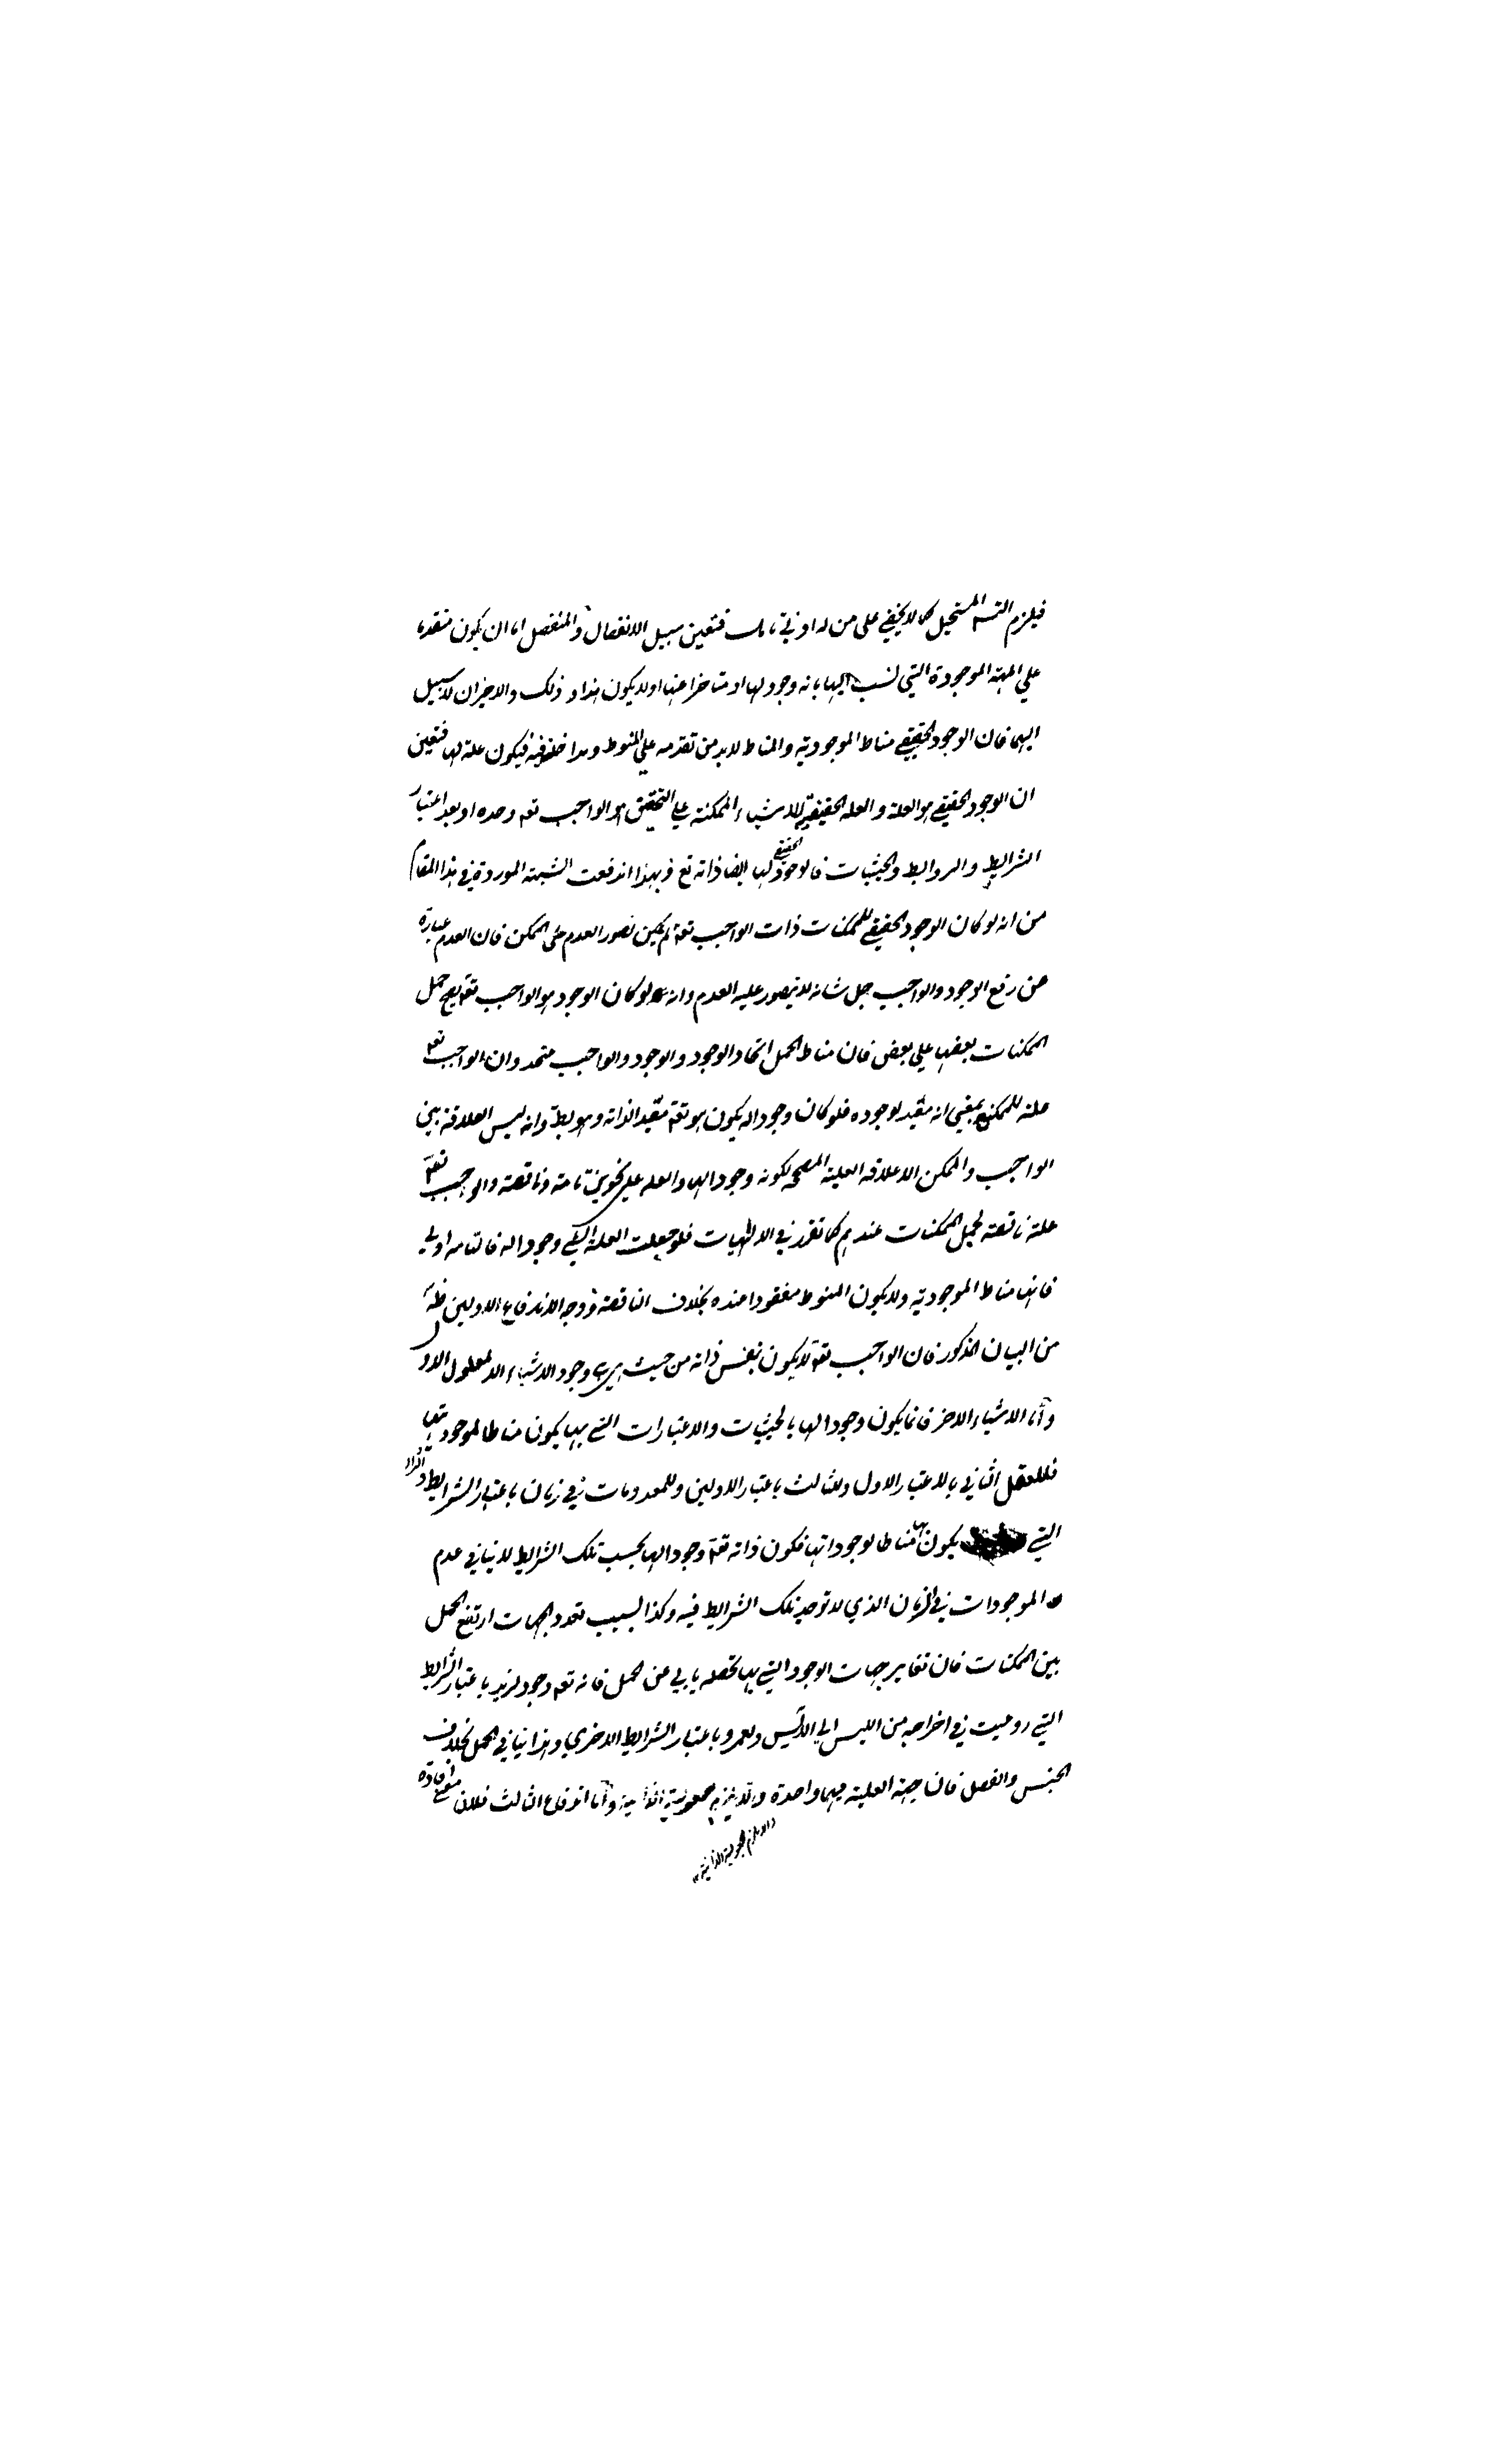 فيلزم التسم المستحيل كما لا يخفى على من له ادنى تامل فتعين سبيل الانفصال والمنفصل اما ان يكون متقدما
على المهية الموجودة التي نسب اليها بانه وجود لها او متاخرا عنها او لا يكون هذا و ذلك والاخيران لا سبيل
اليهما فان الوجود الحقيقي مناط الموجودية والمناط لا بد من تقدمه على المنوط وهذا خلف فيكون علة لها فتعين
ان الوجود الحقيقي هو العلة والعلة الحقيقية للاشياء الممكنة على التحقيق هو الواجب تعه وحده او بعد اعتبار
الشرايط والروابط والحيثيات فالوجود الحقيقي لها ايضا ذاته تع وبهذا اندفعت الشبهة الموردة في هذا المقام
من انه لو كان الوجود الحقيقي للممكنات ذات الواجب تعه لم يكن تصور العدم على الممكن فان العدم عبارة
عن رفع الوجود والواجب جل شانه لا يتصور عليه العدم وانه لو كان الوجود هو الواجب تعه يصح حمل
الممكنات بعضها على بعض فان مناط الحمل اتحاد الوجود والوجود والواجب متحد وان الواجب تعه
علة للممكن بمعنى انه مفيد لوجوده فلو كان وجودا له يكون هو تعه مفيد الذاته وهو بط وانه ليس العلاقة بين
الواجب والممكن الا علاقة العلية المصححة لكونه وجودا لها والعلة على نحوين تامة وناقصة والواجب تعه
علة ناقصة لجل الممكنات عندهم كما تقرر في الالهيات فلو جعلت العلة الشي وجودا له فالتامه اولى
فانها مناط الموجودية ولا يكون المنوط مفقودا عنده بخلاف الناقصة ووجه الاندفاع الاولين ظه
من البيان المذكور فان الواجب تعه لا يكون بنفس ذاته من حيث هي هي وجود الاشياء الا لمعلول الاول
واما الاشياء الاخر فانما يكون وجودا لها بالحيثيات والاعتبارات التي بها يكون مناطا لموجوديتها
فللعقل الثاني بالاعتبار الاول وللثالث باعتبار الاولين وللمعدومات في زمان باعتبار الشرايط
التي يكون بها مناطا لوجوداتها فكون ذاته تعه وجودا لها بحسب تلك الشرايط لا ينافي عدم
الموجودات في الزمان الذي لا توجد تلك الشرايط فيه وكذا بسبب تعدد الجهات ارتفع الحمل
بين الممكنات فان تغاير جهات الوجود التي بها تحصله يابى عن الحمل فانه تعه وجود لزيد باعتبار الشرايط
التي روعيت في اخراجه من الليس الى الايس ولعمرو باعتبار الشرايط الاخرى وهذا ينافي الحمل بخلاف
الجنس والفصل فان جهة العلية فيهما واحدة واما اندفاع الثالث فلان